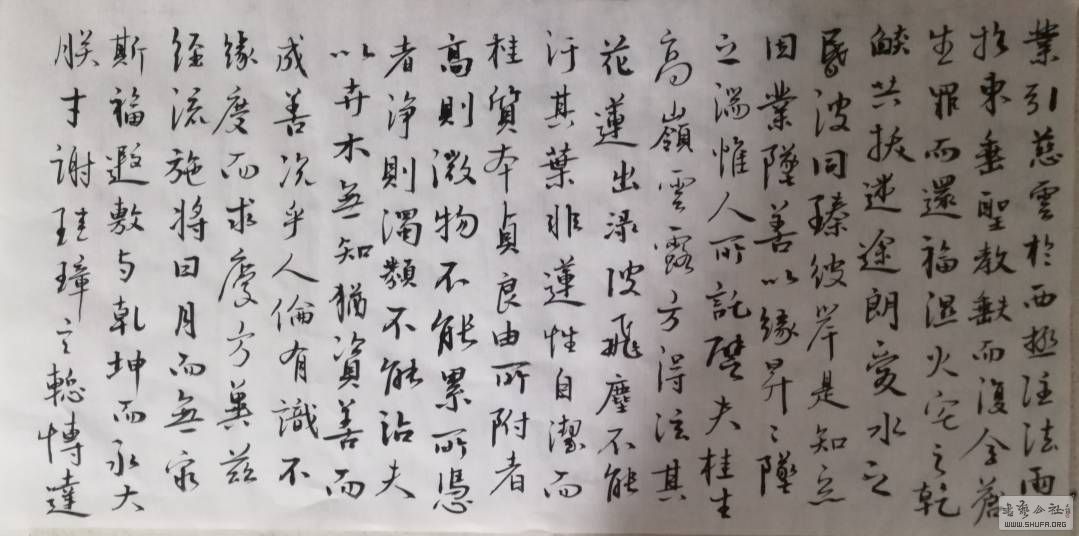 業引慈雲於西極注法雨
於東垂聖教缺而復全蒼
生罪而還福濕火宅之乾
燄共拔迷途朗愛水之
昏波同臻彼岸是知惡
因業墜善以緣昇〻墜
之端惟人所託譬夫桂生
高嶺雲露方得泫其
花蓮出淥波飛塵不能
汙其葉非蓮性自潔而
桂質本貞良由所附者
高則微物不能累所憑
者淨則濁類不能沾夫
以卉木無知猶資善而
成善況乎人倫有識不
緣慶而求慶方冀茲
經流施將日月而無窮
斯福遐敷与乾坤而永大
朕才謝珪璋言慙博達
书艺公社
WWW.SHUFA.ORG